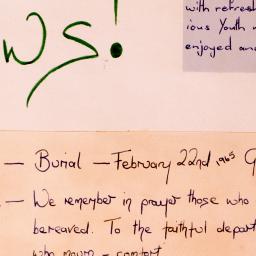 ws!
with refresh
ious Youth
enjoyed and
— Burial — February 22nd, 1965 G
— We remember in prayer those who
bereaved. To the faithful depart
who mourn - comfort